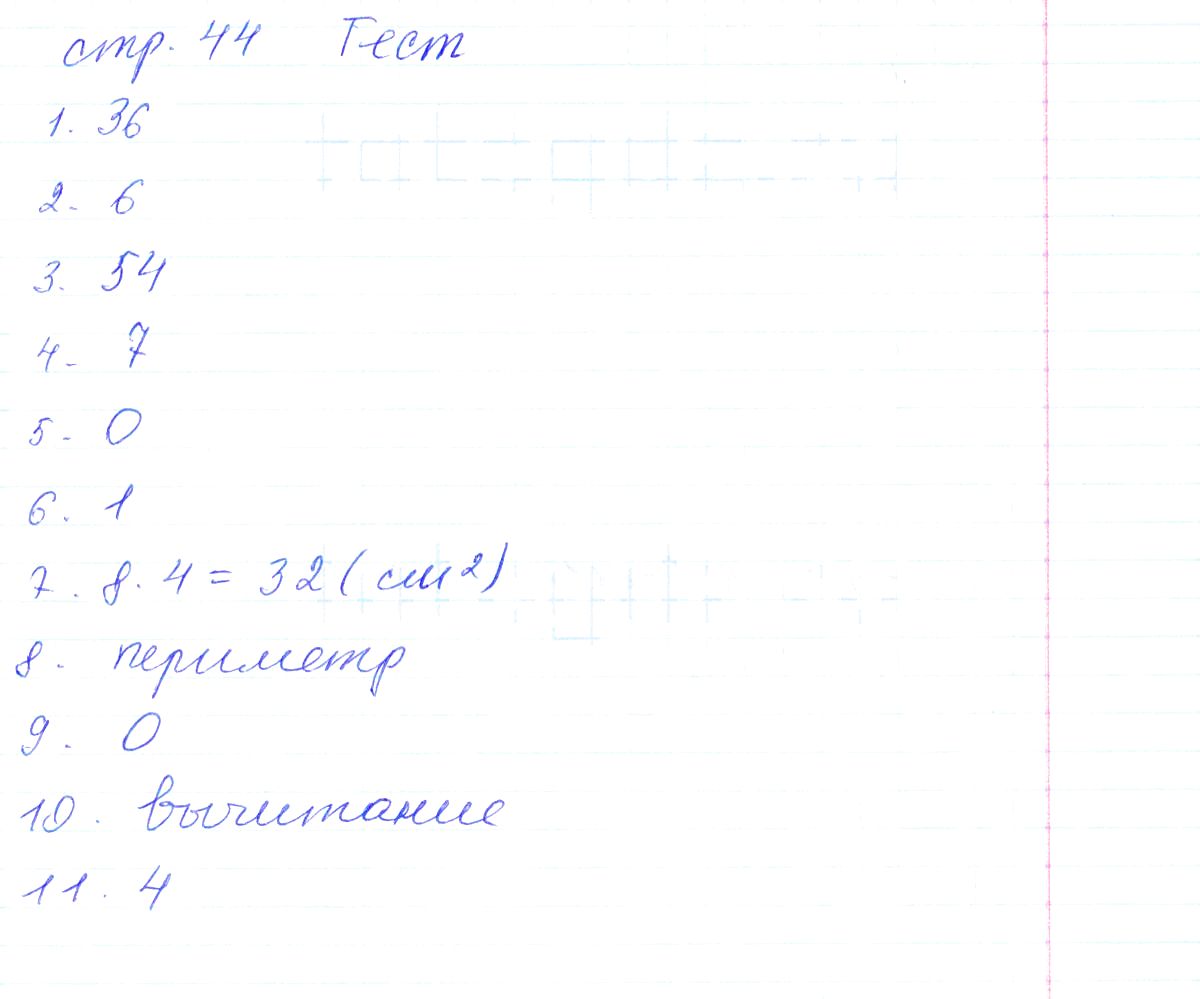 стр. 44 Тест
1. 36
2. 6
3. 54
4. 7
5. 0
6. 1
7. 8 · 4 = 32 (см²)
8. периметр
9. 0
10. вычитание
11. 4